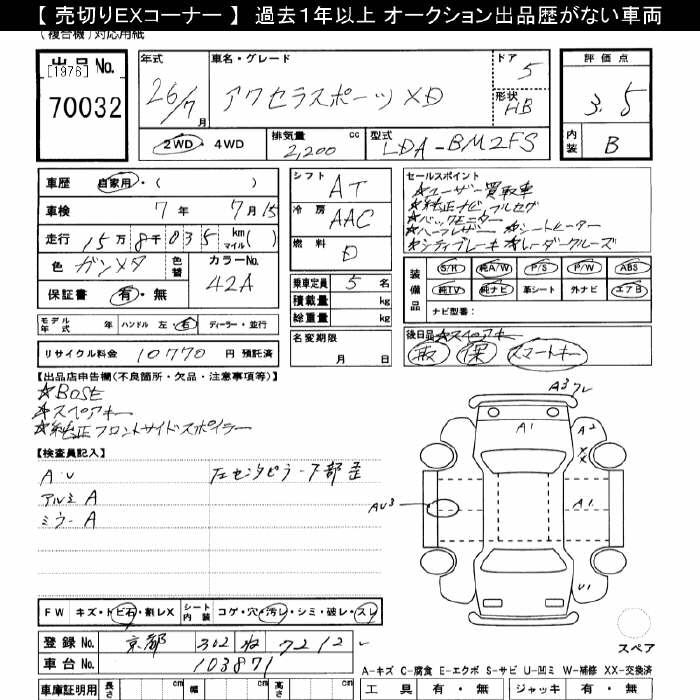 【 売切りEXコーナー 】 過去１年以上 オークション出品歴がない車両
（複合機）対応用紙
出品 No.
[1976]
70032
年式
26/7 月
車名・グレード
アクセラスポーツXD
ドア 5
形状 HB
2WD ・ 4WD
排気量 cc
2,200
型式
LDA-BM2FS
評価点
3.5
内装 B
車歴 自家用・( )
車検 7 年 7 月 15
走行 15 万 8 千 035 km マイル ( )
色 ガンメタ 色替 カラーNo. 42A
保証書 有・無
モデル年式 年 ハンドル 左・右 ディーラー・並行
リサイクル料金 10770 円 預託済
シフト AT
冷房 AAC
燃料 D
乗車定員 5 名
積載量 kg
総重量 kg
名変期限
月 日
セールスポイント
☆ユーザー買取車
☆純正ナビフルセグ
☆バックモニター
☆ハーフレザー ☆シートヒーター
☆シティブレーキ ☆レーダークルーズ
装備品
S/R 純A/W P/S P/W ABS
純TV 純ナビ 革シート 外ナビ エアB
ナビ型番：
後日品 ☆スペアキー
取 保 スマートキー
【出品店申告欄(不良箇所・欠品・注意事項等)】
☆BOSE
☆スペアキー
☆純正フロントサイドスポイラー
【検査員記入】
A・U
アルミ A
ミラー A
左センタピラー下部歪
A3 ワレ
A1
A2
XX
AU3
A1
U1
スペア
FW キズ・トビ石・割レX シート内装 コゲ・穴・汚レ・シミ・破レ・スレ
登録 No. 京都 302 ね 7212
車台 No. 103871
A-キズ C-腐食 E-エクボ S-サビ U-凹ミ W-補修 XX-交換済
車庫証明用 長さ cm 幅 cm 高さ cm
工具 有・無 ジャッキ 有・無